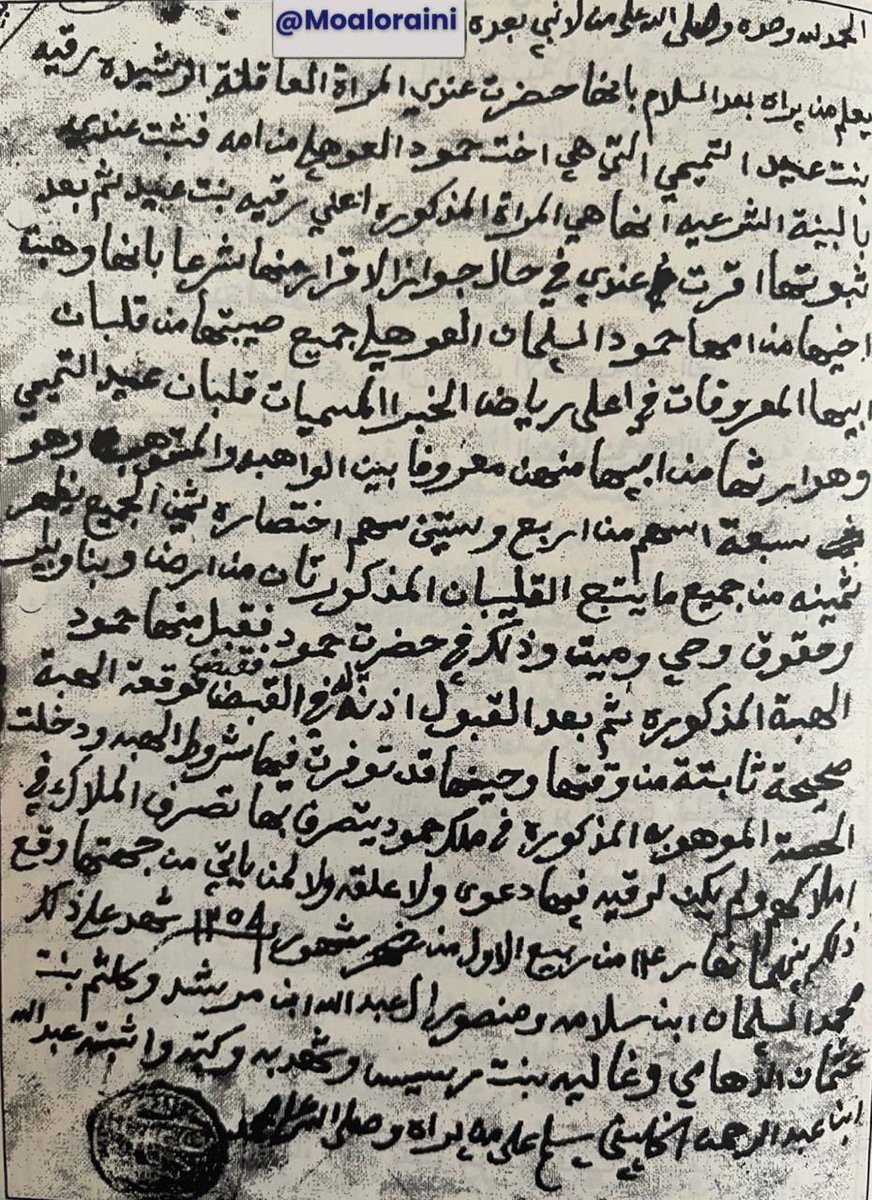 @Moaloraini
الحمد لله وحده وصلى الله على من لا نبي بعده
يعلم من يراه بعد السلام بانها حضرت عندي المراة العاقلة الرشيده رقيه
بنت عبيد التميمي التي هي اخت حمود العوهلي من امه فثبت عندي
بالبينة الشرعيه انها هي المراة المذكوره اعلي رقيه بنت عبيد ثم بعد
ثبوتها اقرت عندي في حال جواز الاقرار منها شرعا بانها وهبة
اخيها من امها حمود السليمان العوهلي جميع صيبتها من قلبات
ابيها المعروفات في اعلى رياض الخبرا المسميات قلبان عبيد التميمي
وهو ارثها من ابيها منهن معروفا بين الواهبه والمتهوب وهو
سبعة اسهم من اربع وستين سهم اختصاره ثمن الجميع يظهر
ثمينه من جميع ما يتبع القليبان المذكورتان من ارض وبنا وبلد
وحقوق وحي وميت وذلك في حضرت حمود فقبل منها حمود
الهبة المذكوره ثم بعد القبول اذنة له في القبض فقبض فوقعة الهبة
صحيحة ثابتة من وقتها وحينها قد توفرت فيها شروط الهبه ودخلت
الحصة الموهوبه المذكوره في ملك حمود يتصرف بها تصرف الملاك في
املاكهم ولم يكن لرقيه فيها دعوى ولا علقه ولا لمن ياتي من جهتها وقع
ذلك من ربيع الاول من شهور ١٣٥٨ شهد على ذلك
محمد السليمان ابن سلامه ومنصور ال عبد الله ابن مرشد وكلثم بنت
عثمان الدهامي وغاليه بنت وشهد به وكتبه واثبته عبد الله
ابن عبد الرحمن الخليفي يسلم على من يراه وصلى الله على محمد